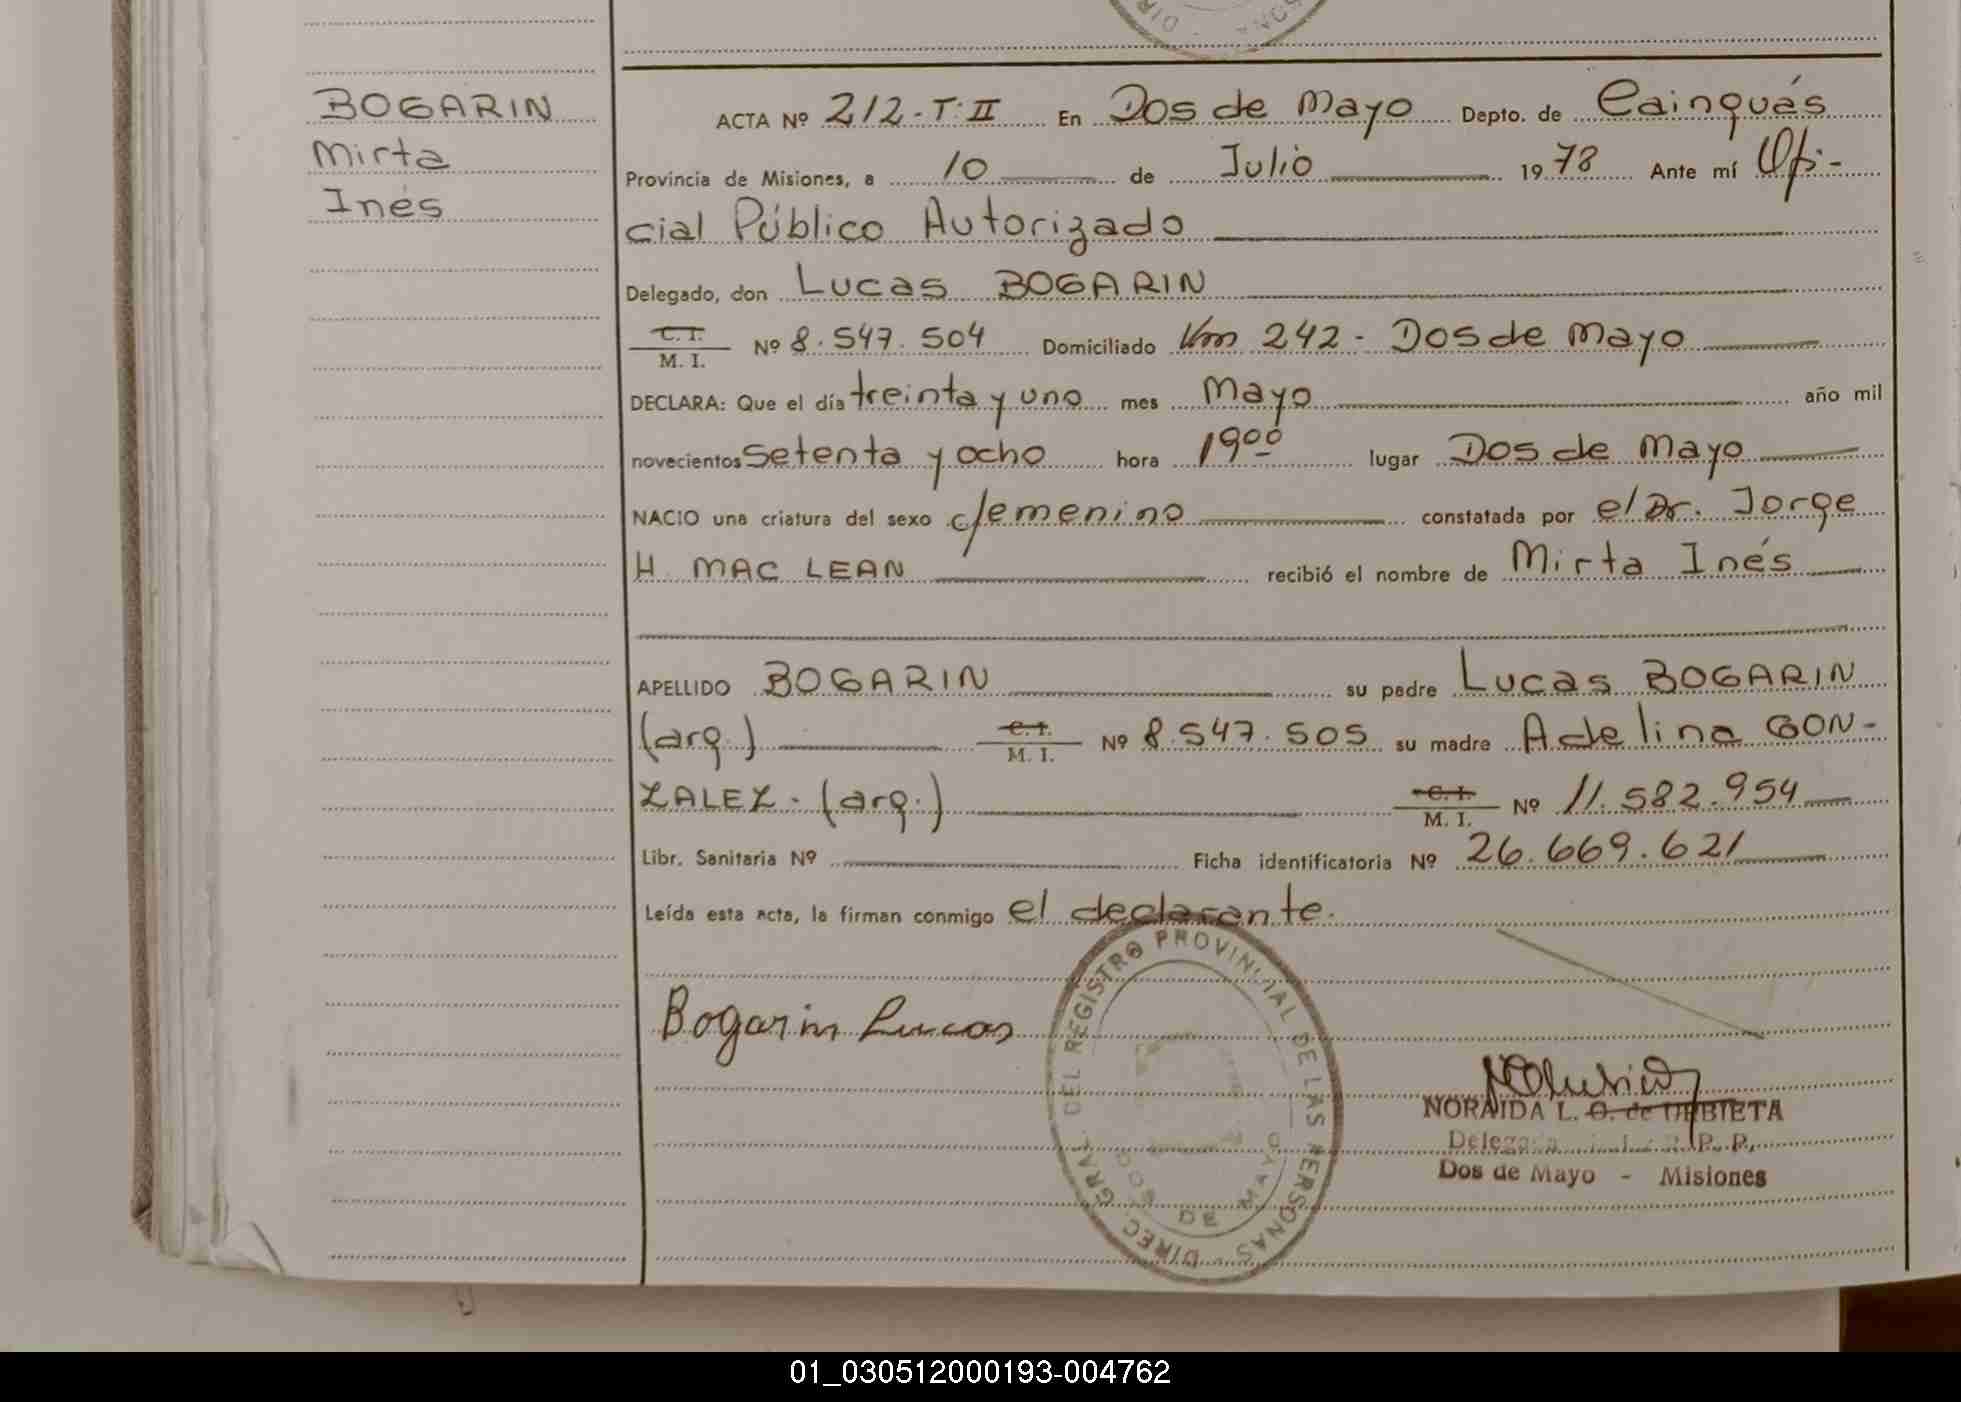 BOGARIN
Mirta
Inés
ACTA Nº 212-T:II En Dos de Mayo Depto. de Cainguás
Provincia de Misiones, a 10 de Julio 1978 Ante mí Ofi-
cial Público Autorizado
Delegado, don Lucas BOGARIN
C. I.
M. I. Nº 8.547.504 Domiciliado Km 242- Dos de Mayo
DECLARA: Que el día treinta y uno mes Mayo año mil
novecientos setenta y ocho hora 19 00 lugar Dos de Mayo
NACIO una criatura del sexo femenino constatada por el Dr. Jorge
H. MAC LEAN recibió el nombre de Mirta Inés
APELLIDO BOGARIN su padre Lucas BOGARIN
(arg.) C. I. M. I. Nº 8.547.505 su madre Adelina GON-
ZALEZ - (arg.) C. I. M. I. Nº 11.582.954
Libr. Sanitaria Nº Ficha identificatoria Nº 26.669.621
Leída esta acta, la firman conmigo el declarante.
Bogarin Lucas
DIREC. GRAL. DEL REGISTRO PROVINCIAL DE LAS PERSONAS
DOS DE MAYO
NORAIDA L. O. de URBIETA
Delegada R. P. P.
Dos de Mayo - Misiones
01_030512000193-004762